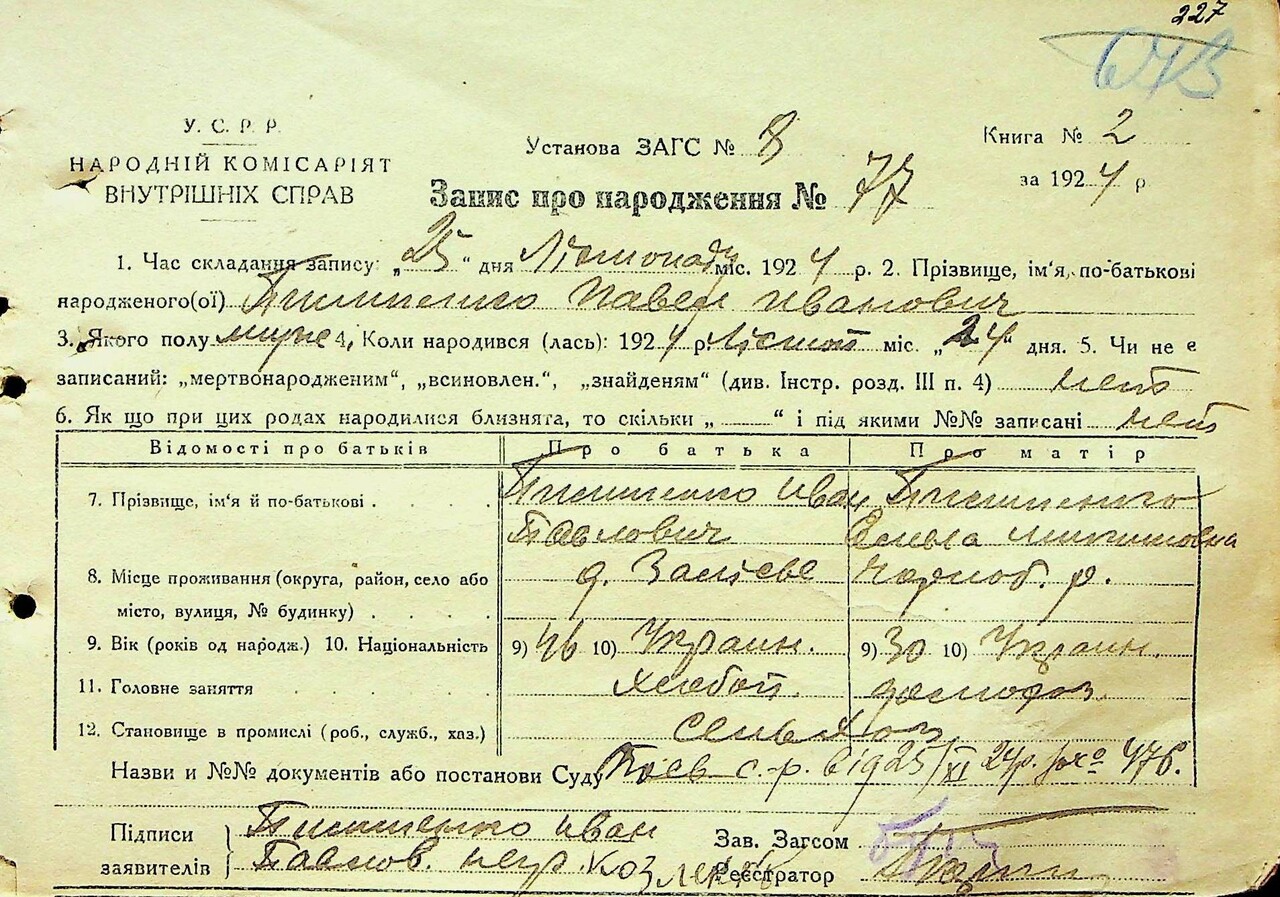 227
673
У. С. Р. Р.
НАРОДНІЙ КОМІСАРІЯТ
ВНУТРІШНІХ СПРАВ
Установа ЗАГС № 8
Книга № 2
за 1924 р.
Запис про народження № 77
1. Час складання запису: „25“ дня Лістопаду міс. 1924 р. 2. Прізвище, ім'я, по-батькові
народженого(ої) Павел Иванович
3. Якого полу муже 4. Коли народився (лась): 1924 р. Лістоп міс. „24“ дня. 5. Чи не є
записаний: „мертвонародженим“, „всиновлен.“, „знайденям“ (див. Інстр. розд. III п. 4) нет
6. Як що при цих родах народилися близнята, то скільки „ “ і під якими №№ записані нет
Відомості про батьків Про батька Про матір
7. Прізвище, ім'я й по-батькові . . . . Иван
Павлович
8. Місце проживання (округа, район, село або д. р.
місто, вулиця, № будинку) . . . .
9. Вік (років од народж.) 10. Національність 9) 46 10) Украин. 9) 30 10) Украин.
11. Головне заняття . . . . хлебоп. домохоз.
12. Становище в промислі (роб., служб., хаз.)
Назви и №№ документів або постанови Суду с.р. від 25/XI 24р. за № 476.
Підписи Иван Зав. Загсом
заявителів Павлов. неур. Реєстратор